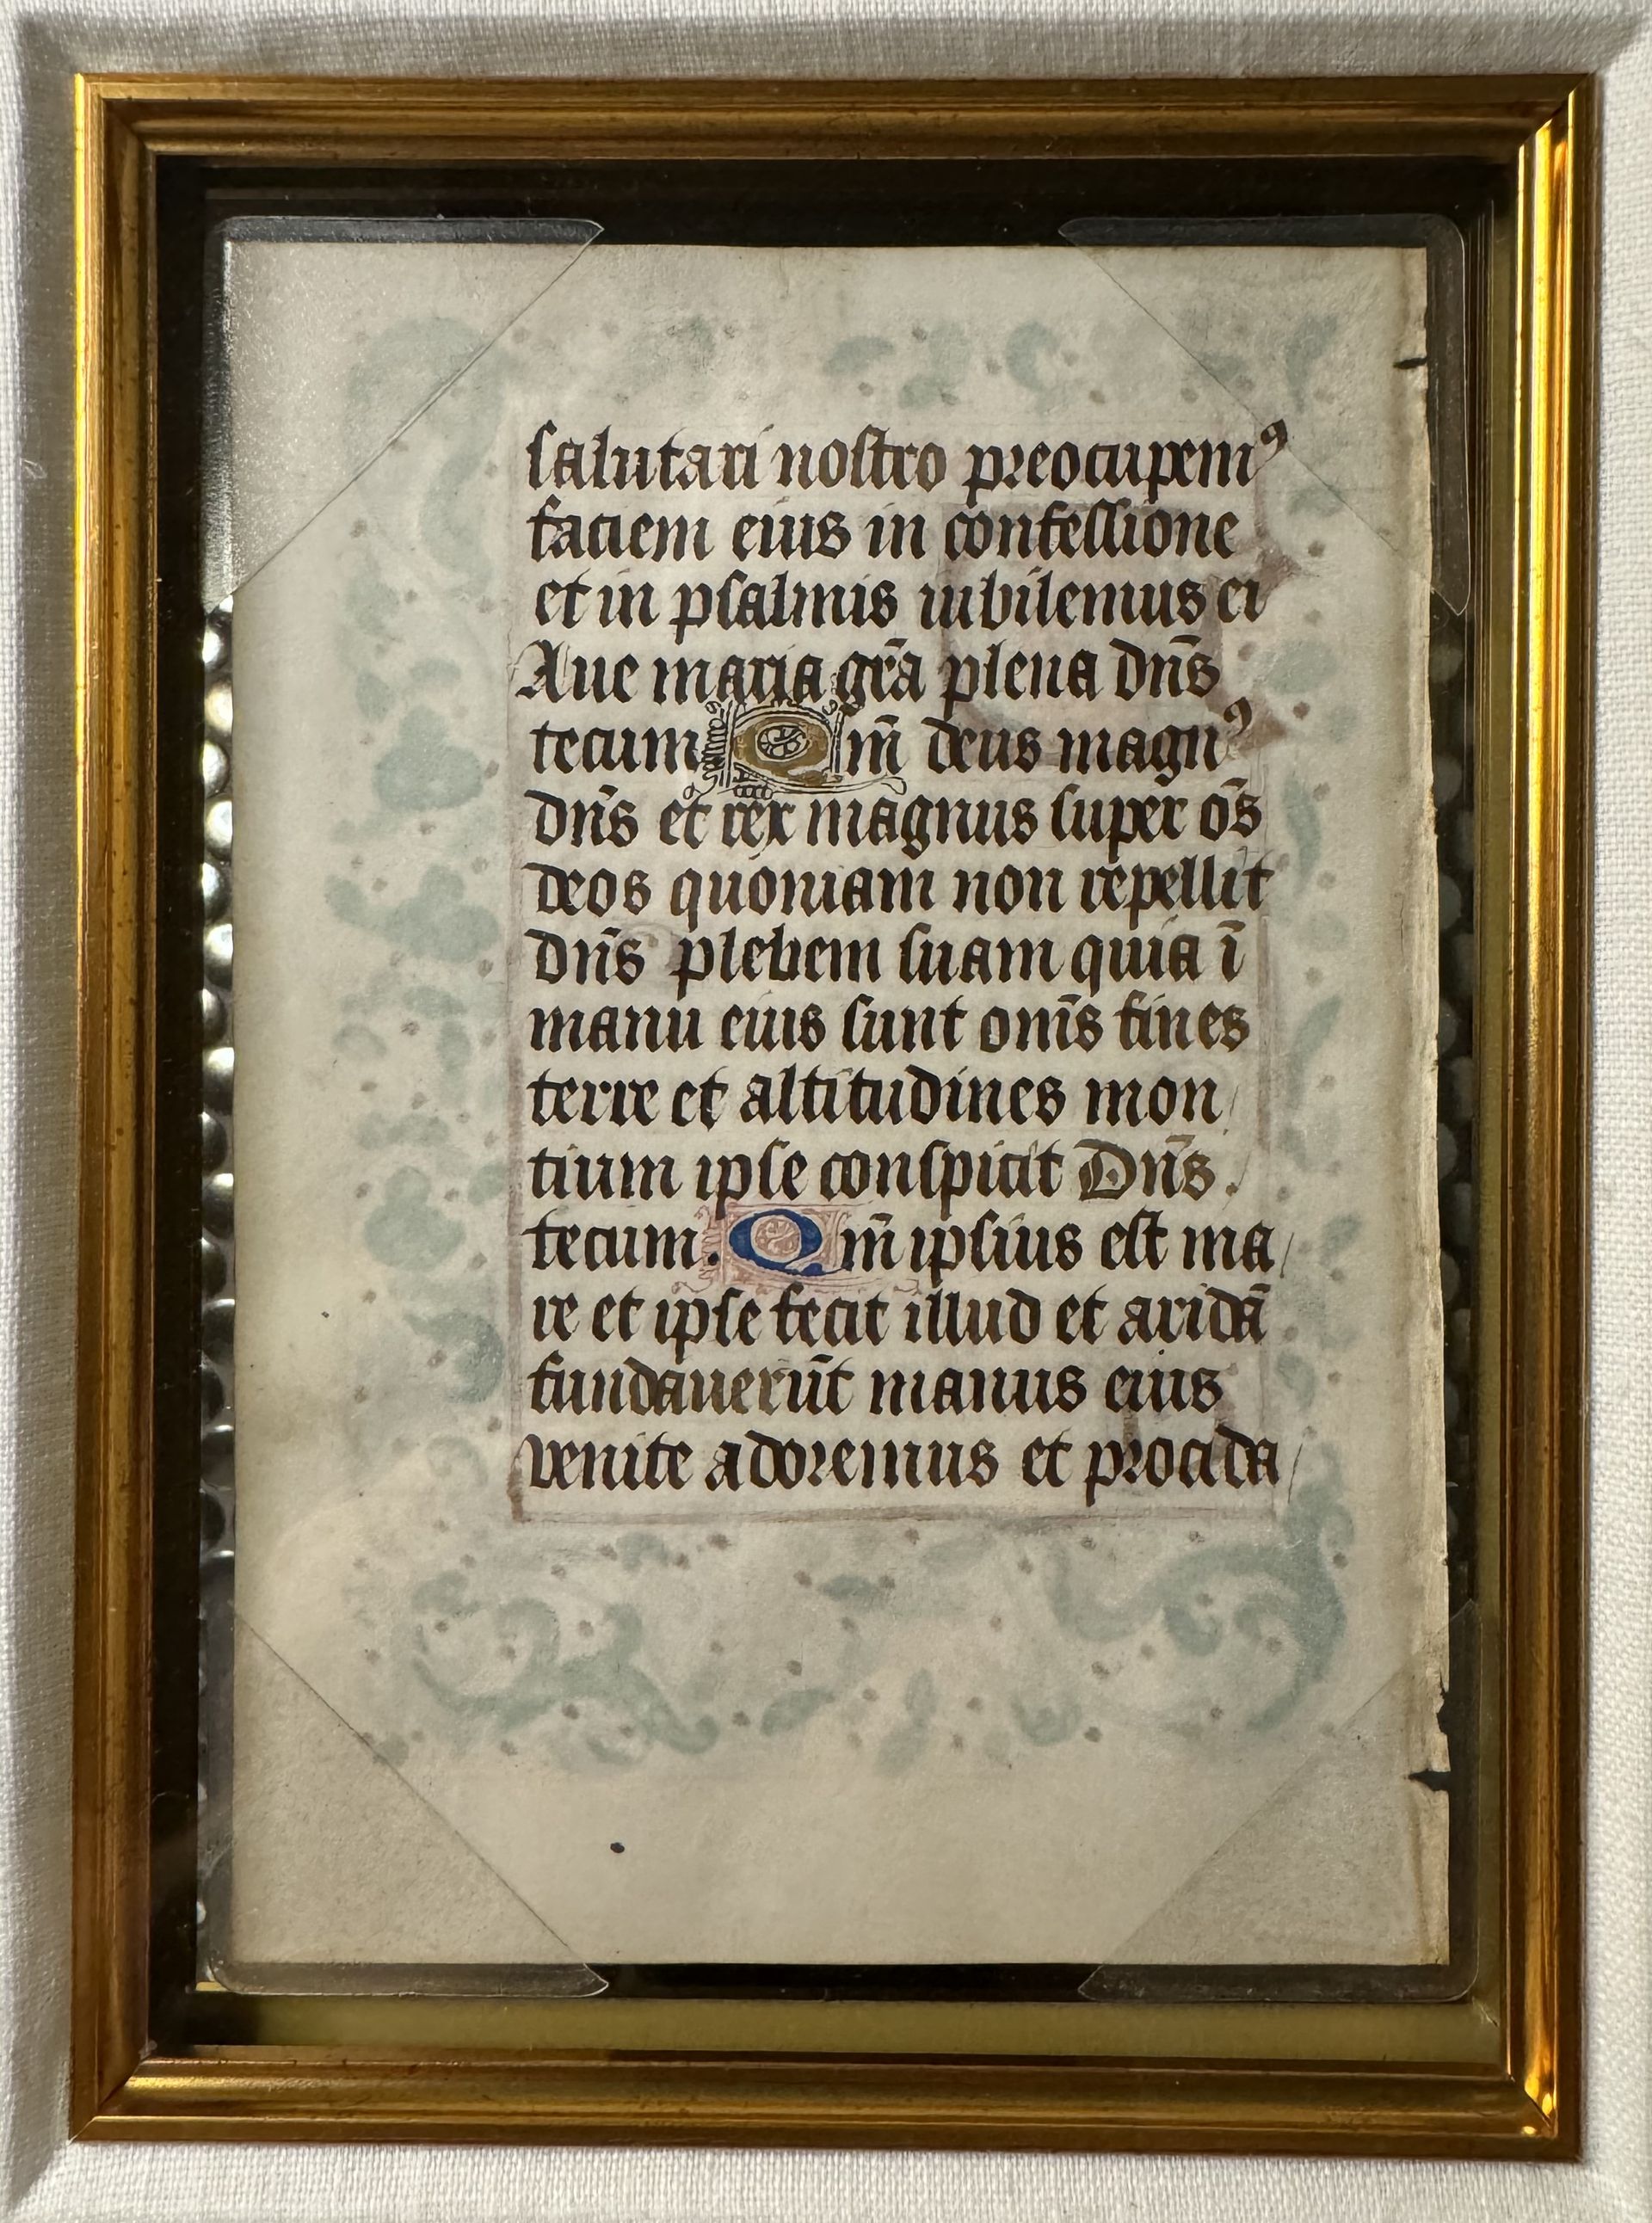 salutari nostro preocupemꝰ
faciem eius in confessione
et in psalmis iubilemus ei
Aue maria gr̄a plena dn̄s
tecum Qm̄ deus magnꝰ
dn̄s et rex magnus super os̄
deos quoniam non repellit
dn̄s plebem suam quia ī
manu eius sunt om̄s fines
terre et altitudines mon
tium ipse conspicit Dn̄s.
tecum. Qm̄ ipsius est ma
re et ipse fecit illud et aridā
fundauerūt manus eius
venite adoremus et procida